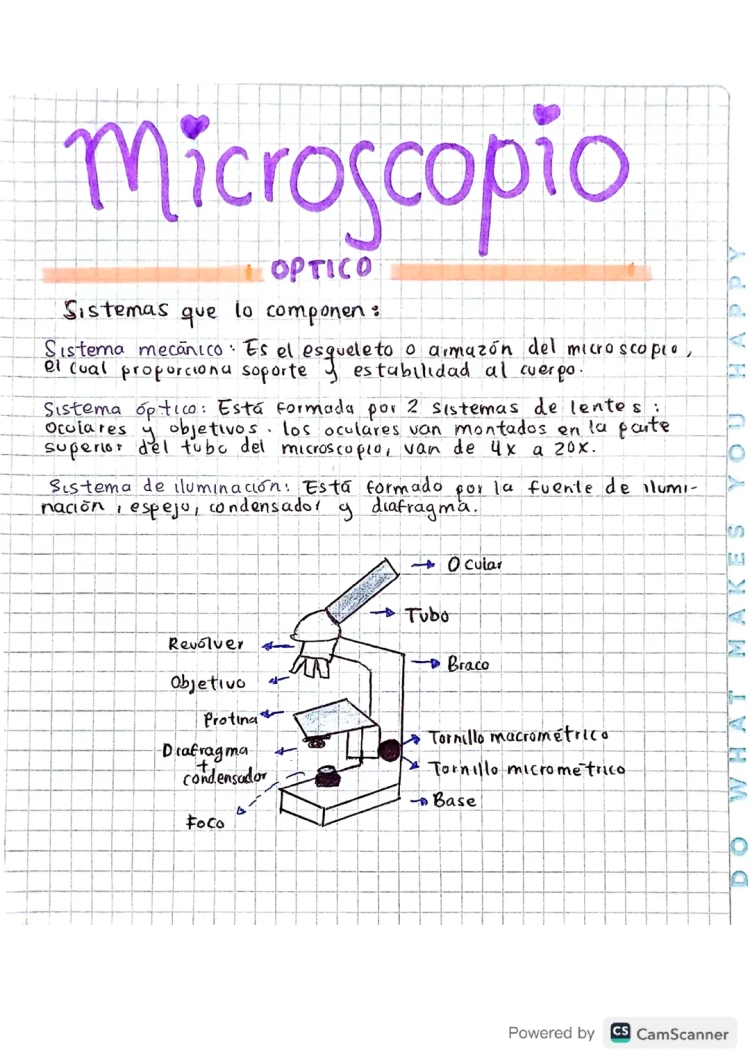 Microscopio
OPTICO
Sistemas que lo componen:
Sistema mecánico: Es el esqueleto o armazón del microscopio,
el cual proporciona soporte y estabilidad al cuerpo.
Sistema óptico: Está formada por 2 sistemas de lentes:
oculares y objetivos. los oculares van montados en la parte
superior del tubo del microscopio, van de 4x a 20x.
Sistema de iluminación: Está formado por la fuente de ilumi-
nación, espejo, condensador y diafragma.
Ocular
Tubo
Revólver
Braco
Objetivo
Protina
Diafragma
+
condensador
Tornillo macrométrico
Tornillo micrométrico
Base
Foco
DO WHAT MAKES YOU HAPPY
Powered by CS CamScanner